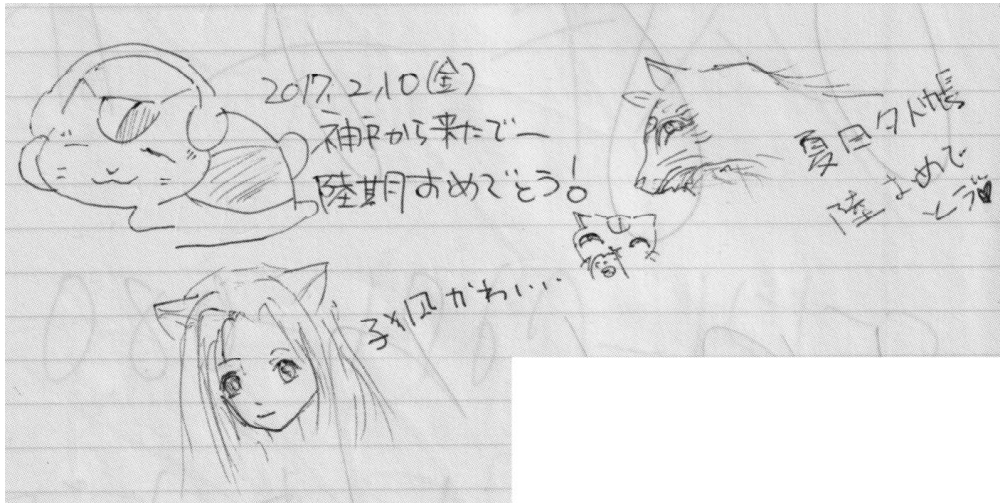 2017.2.10(金)
神戸から来たでー
陸期おめでとう!
夏目友人帳
陸おめで
とう♥
子狐かわいい…